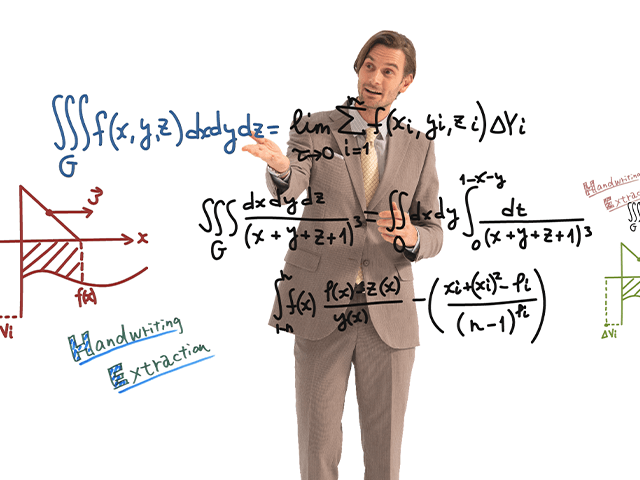 ∭_G f(x,y,z)dxdydz = lim_{τ→0} Σ_{i=1}^{n} f(xi, yi, zi) ΔVi
∭_G dxdydz/(x+y+z+1)^3 = ∬_D dxdy ∫_0^{1-x-y} dt/(x+y+z+1)^3
f(x)
x
f(x)
Vi
Handwriting
Extraction
Handwriting
Extra
ΔVi